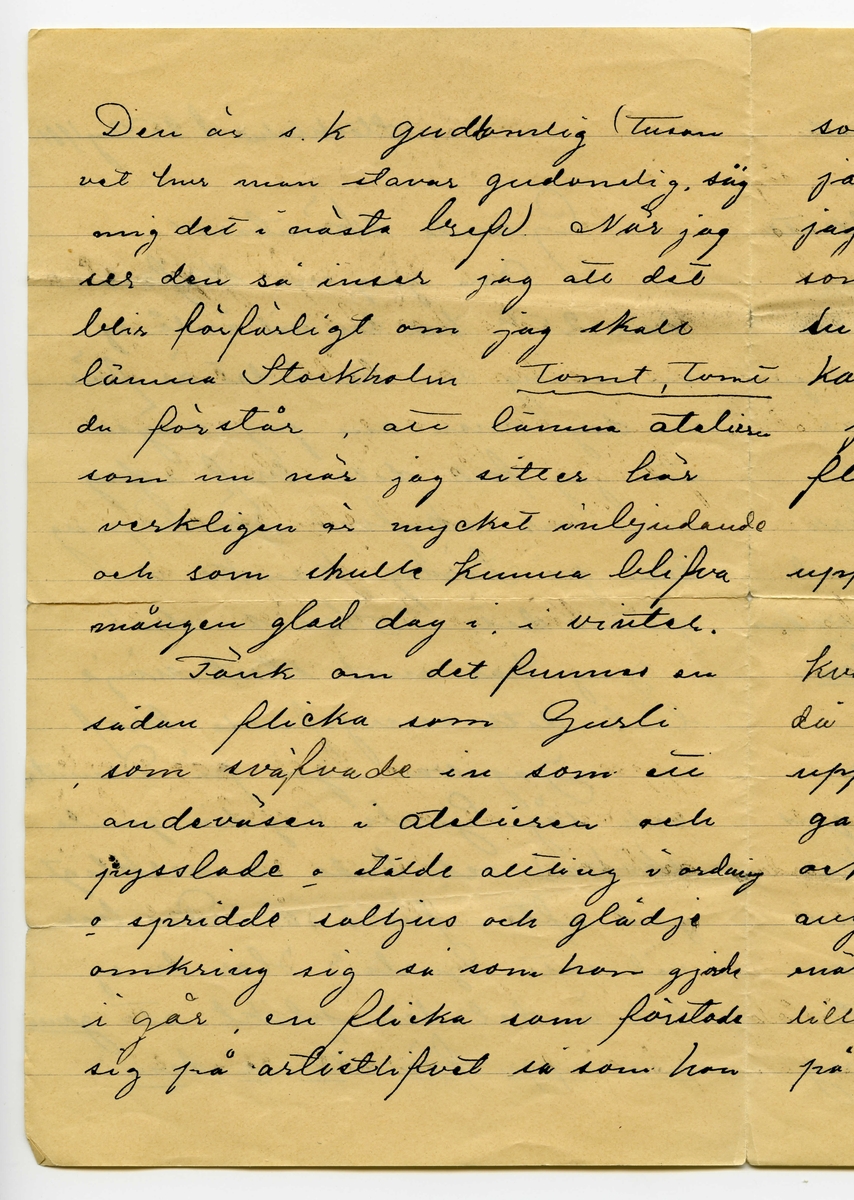 Den är s.k gudomlig (tusan
vet hur man stavar gudomlig, säg
mig det i nästa bref). När jag
ser den så inser jag att det
blir förfärligt om jag skall
lämna Stockholm Tomt, Tomt
du förstår, att lämna atelieren
som nu när jag sitter här
verkligen är mycket inbjudande
och som skulle kunna blifva
mången glad dag i, i vinter.
Tänk om det funnes en
sådan flicka som Gurli
, som sväfvade in som ett
andeväsen i atelieren och
pysslade o stälde allting i ordning
o spridde solljus och glädje
omkring sig så som hon gjorde
i går, en flicka som förstode
sig på artistlifvet så som hon
so
jag
son
du
ka
fl
upp
kv
då
upp
ga
och
till
på